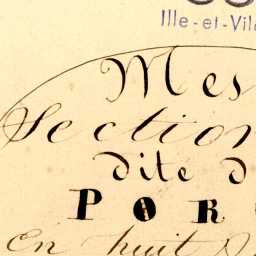 Ille-et-Vil
Mes
Section
dite d
POR
En huit